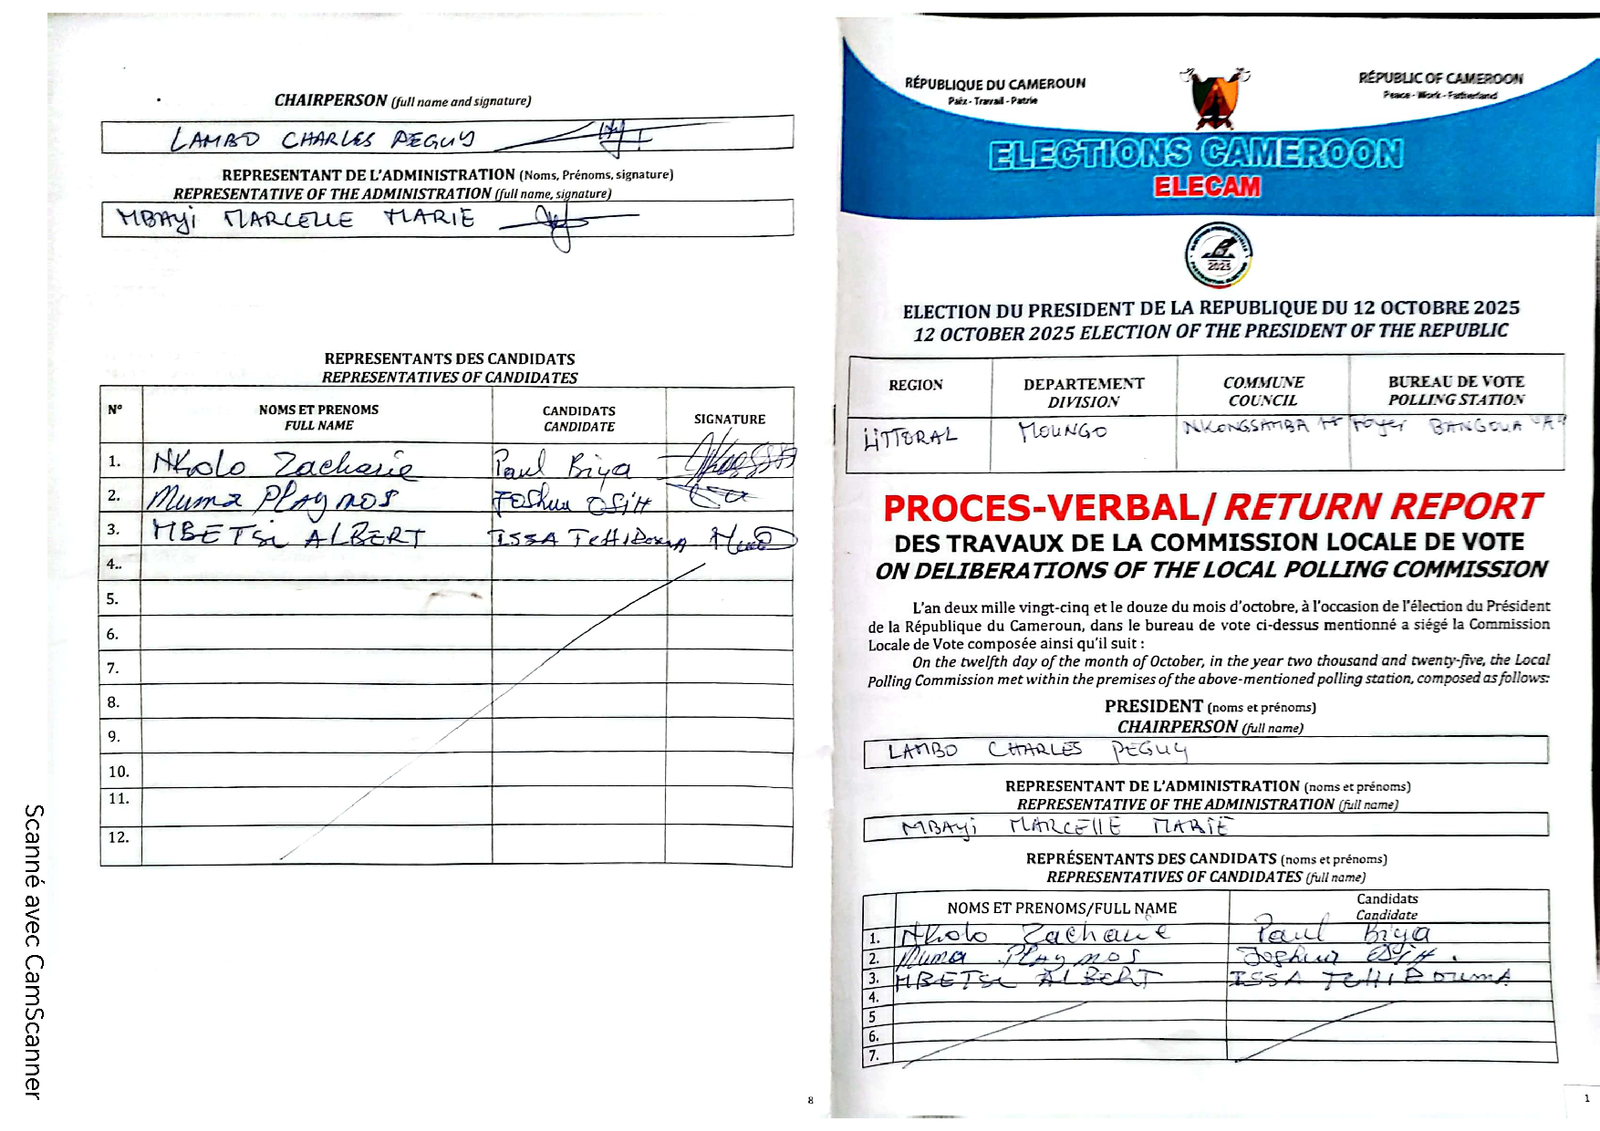 CHAIRPERSON (full name and signature)
LAMBO CHARLES PEGUY
REPRESENTANT DE L'ADMINISTRATION (Noms, Prénoms, signature)
REPRESENTATIVE OF THE ADMINISTRATION (full name, signature)
MBAYi MARCELLE MARIE
REPRESENTANTS DES CANDIDATS
REPRESENTATIVES OF CANDIDATES
N° NOMS ET PRENOMS FULL NAME CANDIDATS CANDIDATE SIGNATURE
1. NKolo Zacharie Paul Biya
2. Muma PLaymos Joshua OSiH
3. MBETSi ALBERT ISSA TcHiRouma
4..
5.
6.
7.
8.
9.
10.
11.
12.
8
Scanné avec CamScanner
RÉPUBLIQUE DU CAMEROUN
Paix - Travail - Patrie
RÉPUBLIC OF CAMEROON
Peace - Work - Fatherland
ELECTIONS CAMEROON
ELECAM
2025
ELECTION DU PRESIDENT DE LA REPUBLIQUE DU 12 OCTOBRE 2025
12 OCTOBER 2025 ELECTION OF THE PRESIDENT OF THE REPUBLIC
REGION DEPARTEMENT DIVISION COMMUNE COUNCIL BUREAU DE VOTE POLLING STATION
LiTTORAL MOUNGO NKONGSAMBA Foyer BANGOUA "A"
PROCES-VERBAL/ RETURN REPORT
DES TRAVAUX DE LA COMMISSION LOCALE DE VOTE
ON DELIBERATIONS OF THE LOCAL POLLING COMMISSION
L'an deux mille vingt-cinq et le douze du mois d'octobre, à l'occasion de l'élection du Président
de la République du Cameroun, dans le bureau de vote ci-dessus mentionné a siégé la Commission
Locale de Vote composée ainsi qu'il suit :
On the twelfth day of the month of October, in the year two thousand and twenty-five, the Local
Polling Commission met within the premises of the above-mentioned polling station, composed as follows:
PRESIDENT (noms et prénoms)
CHAIRPERSON (full name)
LAMBO CHARLES PEGUY
REPRESENTANT DE L'ADMINISTRATION (noms et prénoms)
REPRESENTATIVE OF THE ADMINISTRATION (full name)
MBAYi MARCEllE MARIE
REPRÉSENTANTS DES CANDIDATS (noms et prénoms)
REPRESENTATIVES OF CANDIDATES (full name)
NOMS ET PRENOMS/FULL NAME Candidats Candidate
1. NKolo Zacharie Paul Biya
2. Muma PLaymos Joshua OSiH.
3. MBETSi ALBERT ISSA TCHIROUMA
4.
5
6.
7.
1